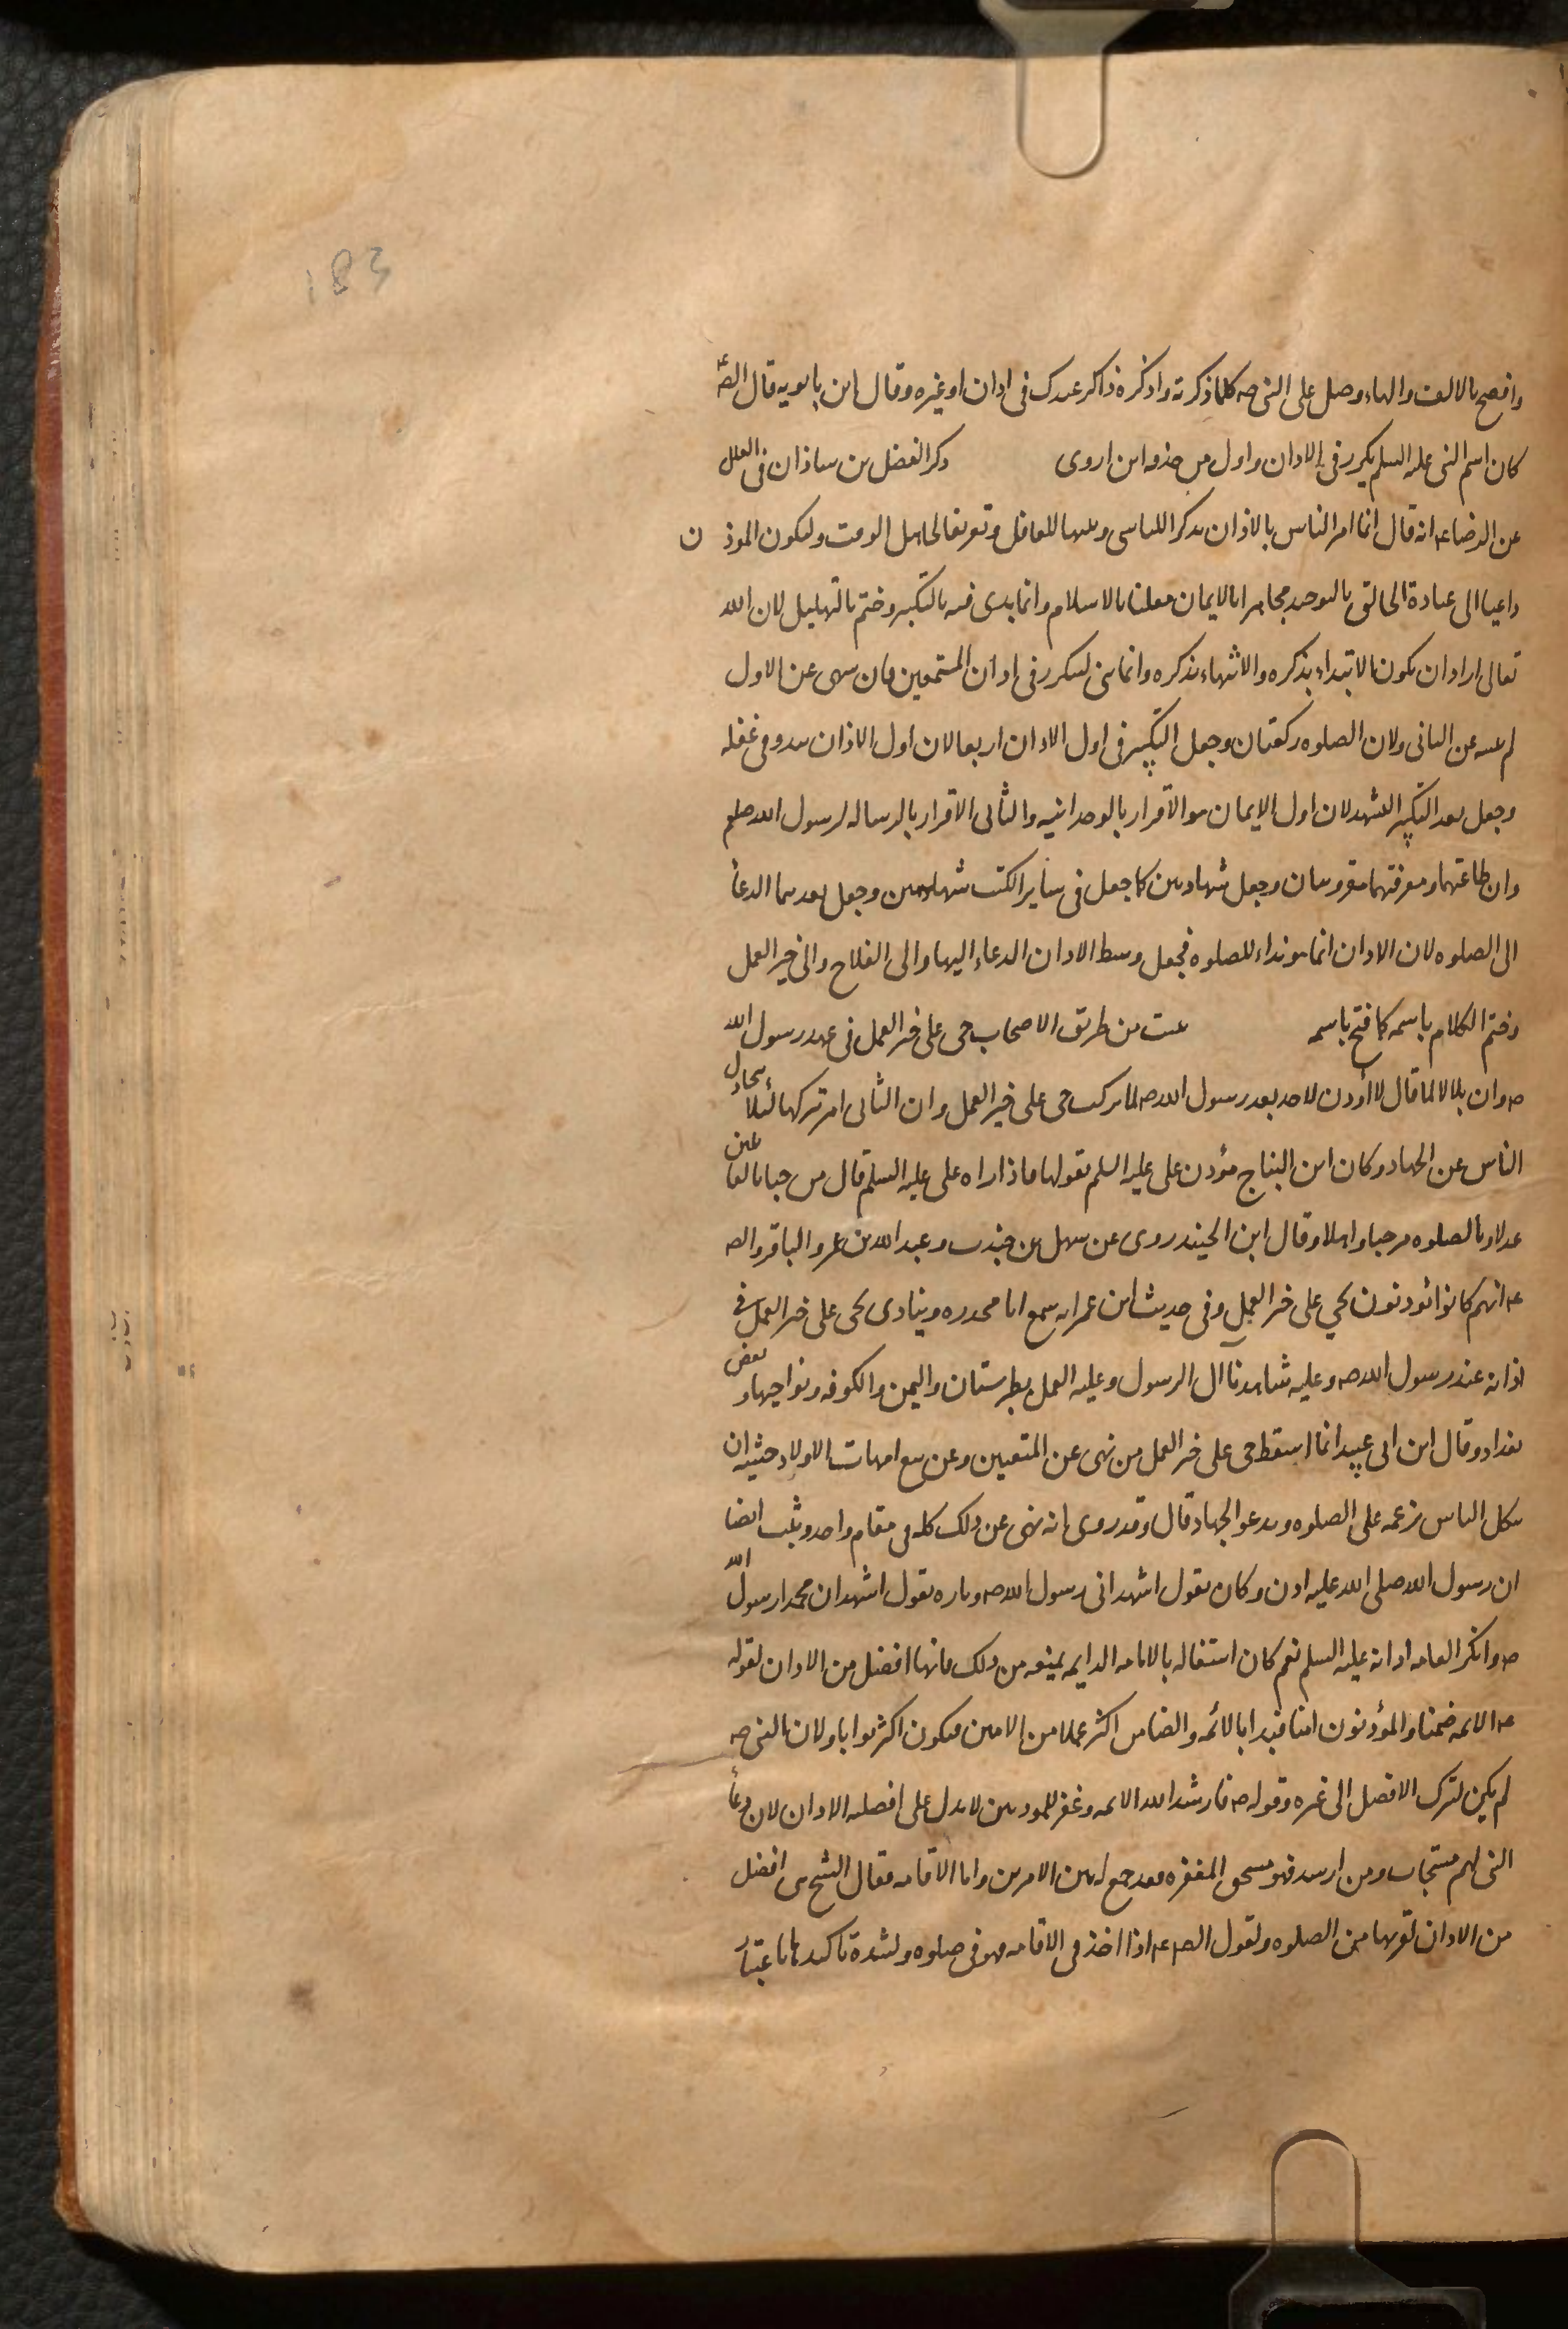 183
وافصح بالالف والهاء وصل على النبى صه كلما ذكرته واذكره ذاكر عندك فى اذان او غيره وقال ابن بابويه قال الصه ع
كان اسم النبى عليه السلم يكرر فى الاذان واول من حذفه ابن اروى ذكر الفضل بن شاذان فى العلل
عن الرضا عه انه قال انما امر الناس بالاذان تذكرا للناسى وتنبيها للغافل وتعريفا لجاهل الوقت وليكون الموذن
داعيا الى عبادة الخالق بالتوحيد مجاهرا بالايمان معلنا بالاسلام وانما بدى فيه بالتكبير وختم بالتهليل لان الله
تعالى اراد ان يكون الابتداء بذكره والانتهاء بذكره وانما ثنى ليتكرر فى اذان المستمعين فان سهى عن الاول
لم يسه عن الثانى ولان الصلوه ركعتان وجعل التكبير فى اول الاذان اربعا لان اول الاذان يبدو فى غفله
وجعل بعد التكبير التشهد لان اول الايمان هو الاقرار بالوحدانيه والثانى الاقرار بالرساله لرسول الله صلعم
وان طاعتهما ومعرفتهما مقرونتان وجعل شهادتين كما جعل فى سائر الكتب شهادتين وجعل بعدهما الدعأ
الى الصلوه لان الاذان انما هو نداء للصلوه فجعل وسط الاذان الدعاء اليها والى الفلاح والى خير العمل
وختم الكلام باسمه كما فتح باسمه عست من طريق الاصحاب حى على خير العمل فى عهد رسول الله
صه وان بلالا لما قال لا أوذن لاحد بعد رسول الله صه لما تركت حى على خير العمل وان الثانى امر بتركها لئلا يتخاذل
الناس عن الجهاد وكان ابن النباح مؤذن على عليه السلم يقولها فاذا راه على عليه السلم قال مرحبا بالقائلين
عدلا وبالصلوه مرحبا واهلا وقال ابن الجنيد روى عن سهل بن جندب وعبد الله بن عمر والباقر والصه
عه انهم كانوا يؤذنون بحي على خير العمل وفى حديث ابن عمر انه سمع ابا محذوره وينادى بحى على خير العمل فى
اذانه عند رسول الله صه وعليه شاهدنا ال الرسول وعليه العمل بطبرستان واليمن والكوفه ونواحيها وبعض
بغداد وقال ابن ابى عبيد انما اسقط حى على خير العمل من نهى عن المتعتين وعن بيع امهات الاولاد خشيه ان
يتكل الناس بزعمه على الصلوه ويدعو الجهاد قال وقد روى انه نهى عن ذلك كله فى مقام واحد وثبت ايضا
ان رسول الله صلى الله عليه اذن وكان يقول اشهد انى رسول الله صه وتاره يقول اشهد ان محمدا رسول الله
صه وانكر العامه اذانه عليه السلم نعم كان اشتغاله بالامامه الدايمه يمنعه من ذلك فانها افضل من الاذان لقوله
صه الائمه ضمنا والمؤذنون امنا فبدا بالائمه والضامن اكثر عملا من الامين فيكون اكثر ثوابا ولان النبى صه
لم يكن لترك الافضل الى غيره وقوله صه فارشد الله الائمه وغفر للموذنين لا يدل على افضليه الاذان لان دعأ
النبى لهم مستجاب ومن ارشد فهو مستحق المغفره فقد جمع لهم بين الامرين واما الاقامه فقال الشيخ هى افضل
من الاذان لقربها من الصلوه ولقول الصه عه اذا اخذ فى الاقامه فهو فى صلوه ولشدة تاكيدها باعتبار